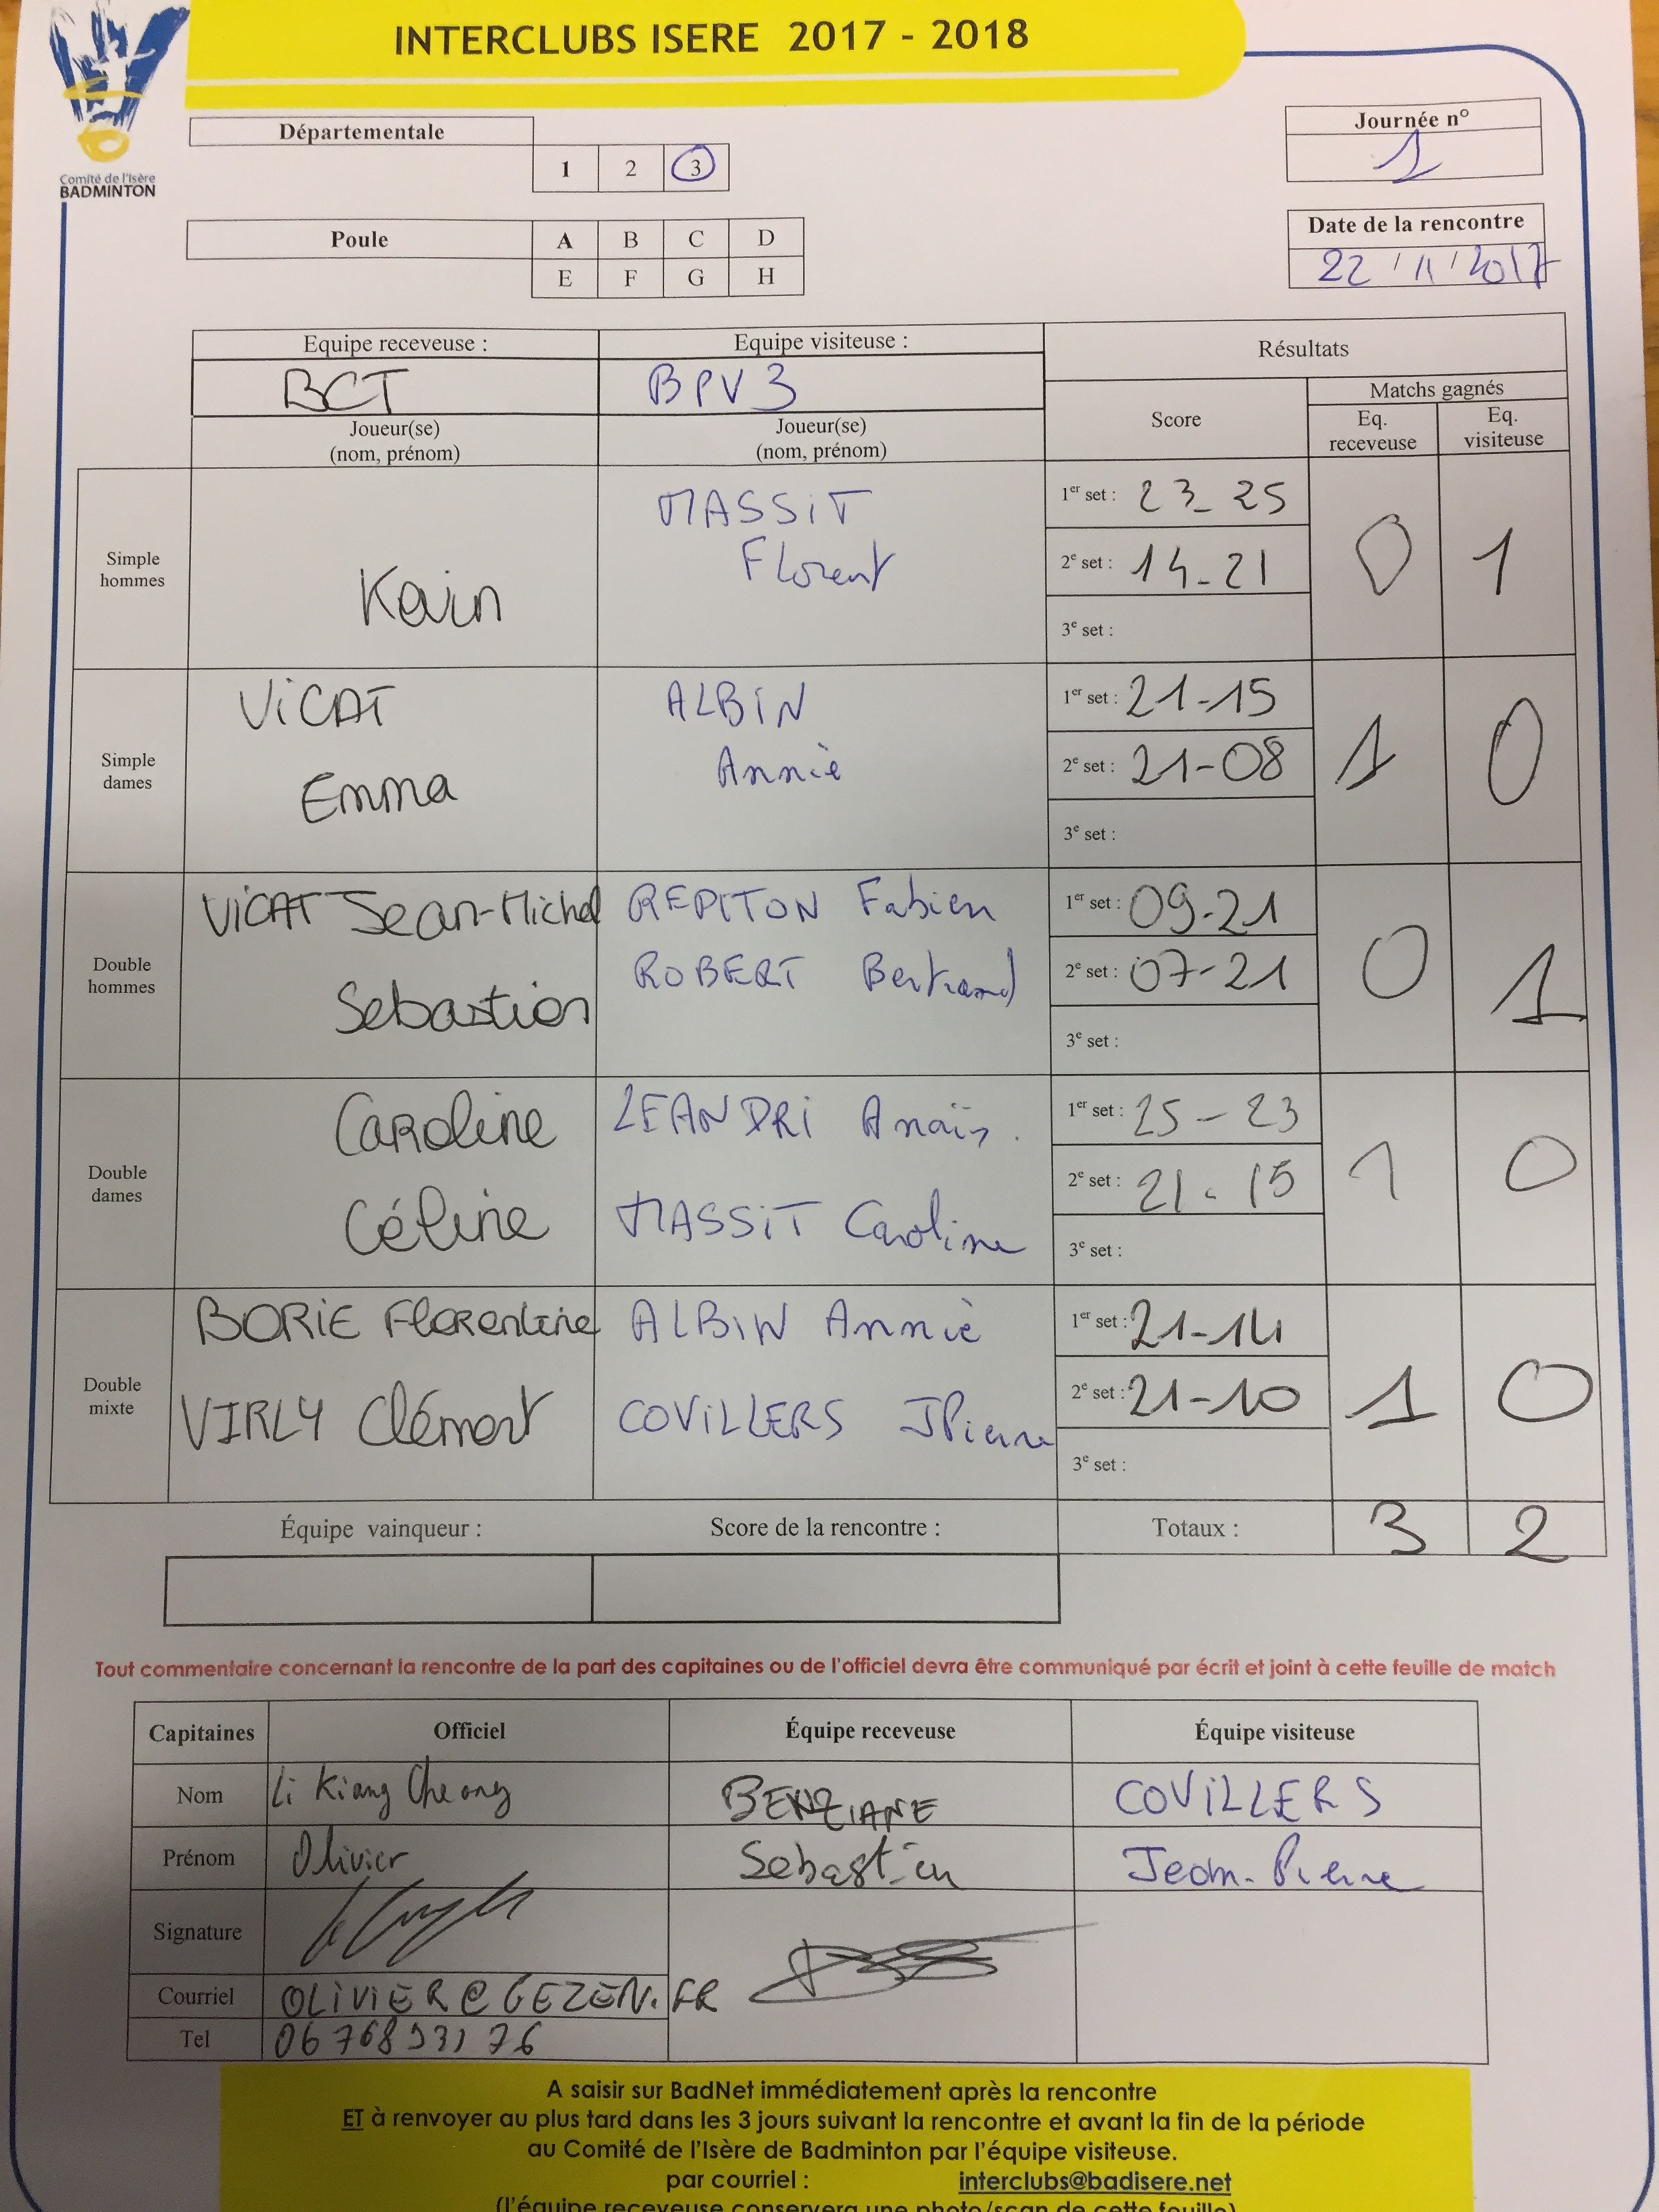 INTERCLUBS ISERE 2017 - 2018
Comité de l'Isère
BADMINTON
Départementale
1 2 3
Journée n°
1
Poule
A B C D
E F G H
Date de la rencontre
22/11/2017
Equipe receveuse : Equipe visiteuse : Résultats
BCT BPV3
Matchs gagnés
Joueur(se) Joueur(se) Score Eq. Eq.
(nom, prénom) (nom, prénom) receveuse visiteuse
Simple
hommes
Kevin
MASSiT
Florent
1er set : 23_25
2e set : 14-21
3e set :
0 1
Simple
dames
ViCAT
Emma
ALBiN
Annie
1er set : 21-15
2e set : 21-08
3e set :
1 0
Double
hommes
ViCAT Jean-Michel
Sebastien
REPITON Fabien
ROBERT Bertrand
1er set : 09-21
2e set : 07-21
3e set :
0 1
Double
dames
Caroline
Céline
LEANDRi Anaïs.
MASSiT Caroline
1er set : 25-23
2e set : 21-15
3e set :
1 0
Double
mixte
BORiE Florentine
VIRLY Clément
ALBiN Annie
COViLLERS JPierre
1er set : 21-14
2e set : 21-10
3e set :
1 0
Équipe vainqueur : Score de la rencontre : Totaux : 3 2
Tout commentaire concernant la rencontre de la part des capitaines ou de l'officiel devra être communiqué par écrit et joint à cette feuille de match
Capitaines Officiel Équipe receveuse Équipe visiteuse
Nom Li Kiang Cheong BENZIANE COViLLERS
Prénom Olivier Sebastien Jean-Pierre
Signature
Courriel OLiViER@GEZEN.FR
Tel
A saisir sur BadNet immédiatement après la rencontre
ET à renvoyer au plus tard dans les 3 jours suivant la rencontre et avant la fin de la période
au Comité de l'Isère de Badminton par l'équipe visiteuse.
par courriel : interclubs@badisere.net
(l'équipe receveuse conservera une photo/scan de cette feuille)